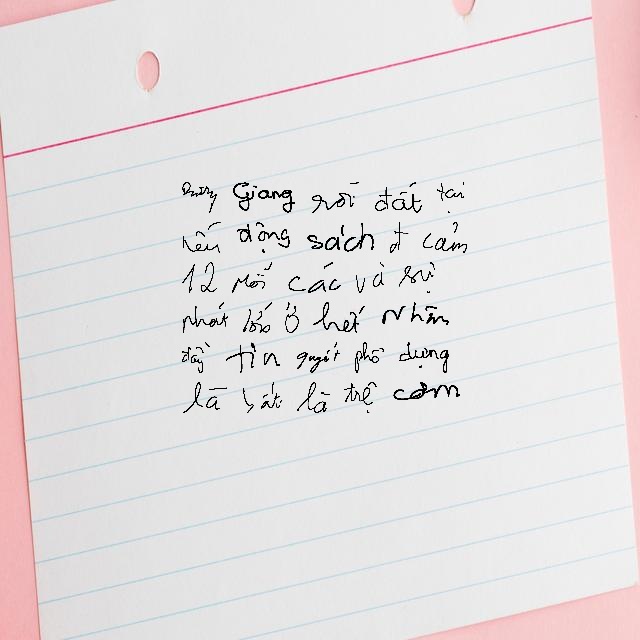 Giang rồi đất tại
nếu động sách đ cảm
12 mới các và sự
phát bốn Ở hết Nhân
đầy tin quyết phố dựng
là bát là trệ cơm